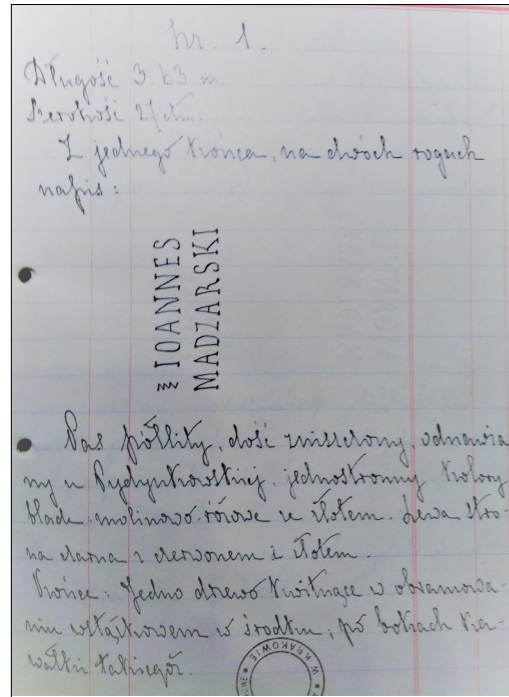 Nr. 1.
Długość 3.63 m.
Szerokość 27 ctm.
Z jednego końca, na dwóch rogach
napis:
IOANNES
MADZARSKI
Pas półlity, dość zniszczony, odnawia-
ny u Pydynkowskiej, jednostronny kolory
blado malinowo różowe ze złotem. Lewa stro-
na czarna z czerwonem i złotem.
Końce: Jedno drzewo kwitnące w obramowa-
niu wstążkowem w środku, po bokach ka-
wałki takiegoż.
W KRAKOWIE